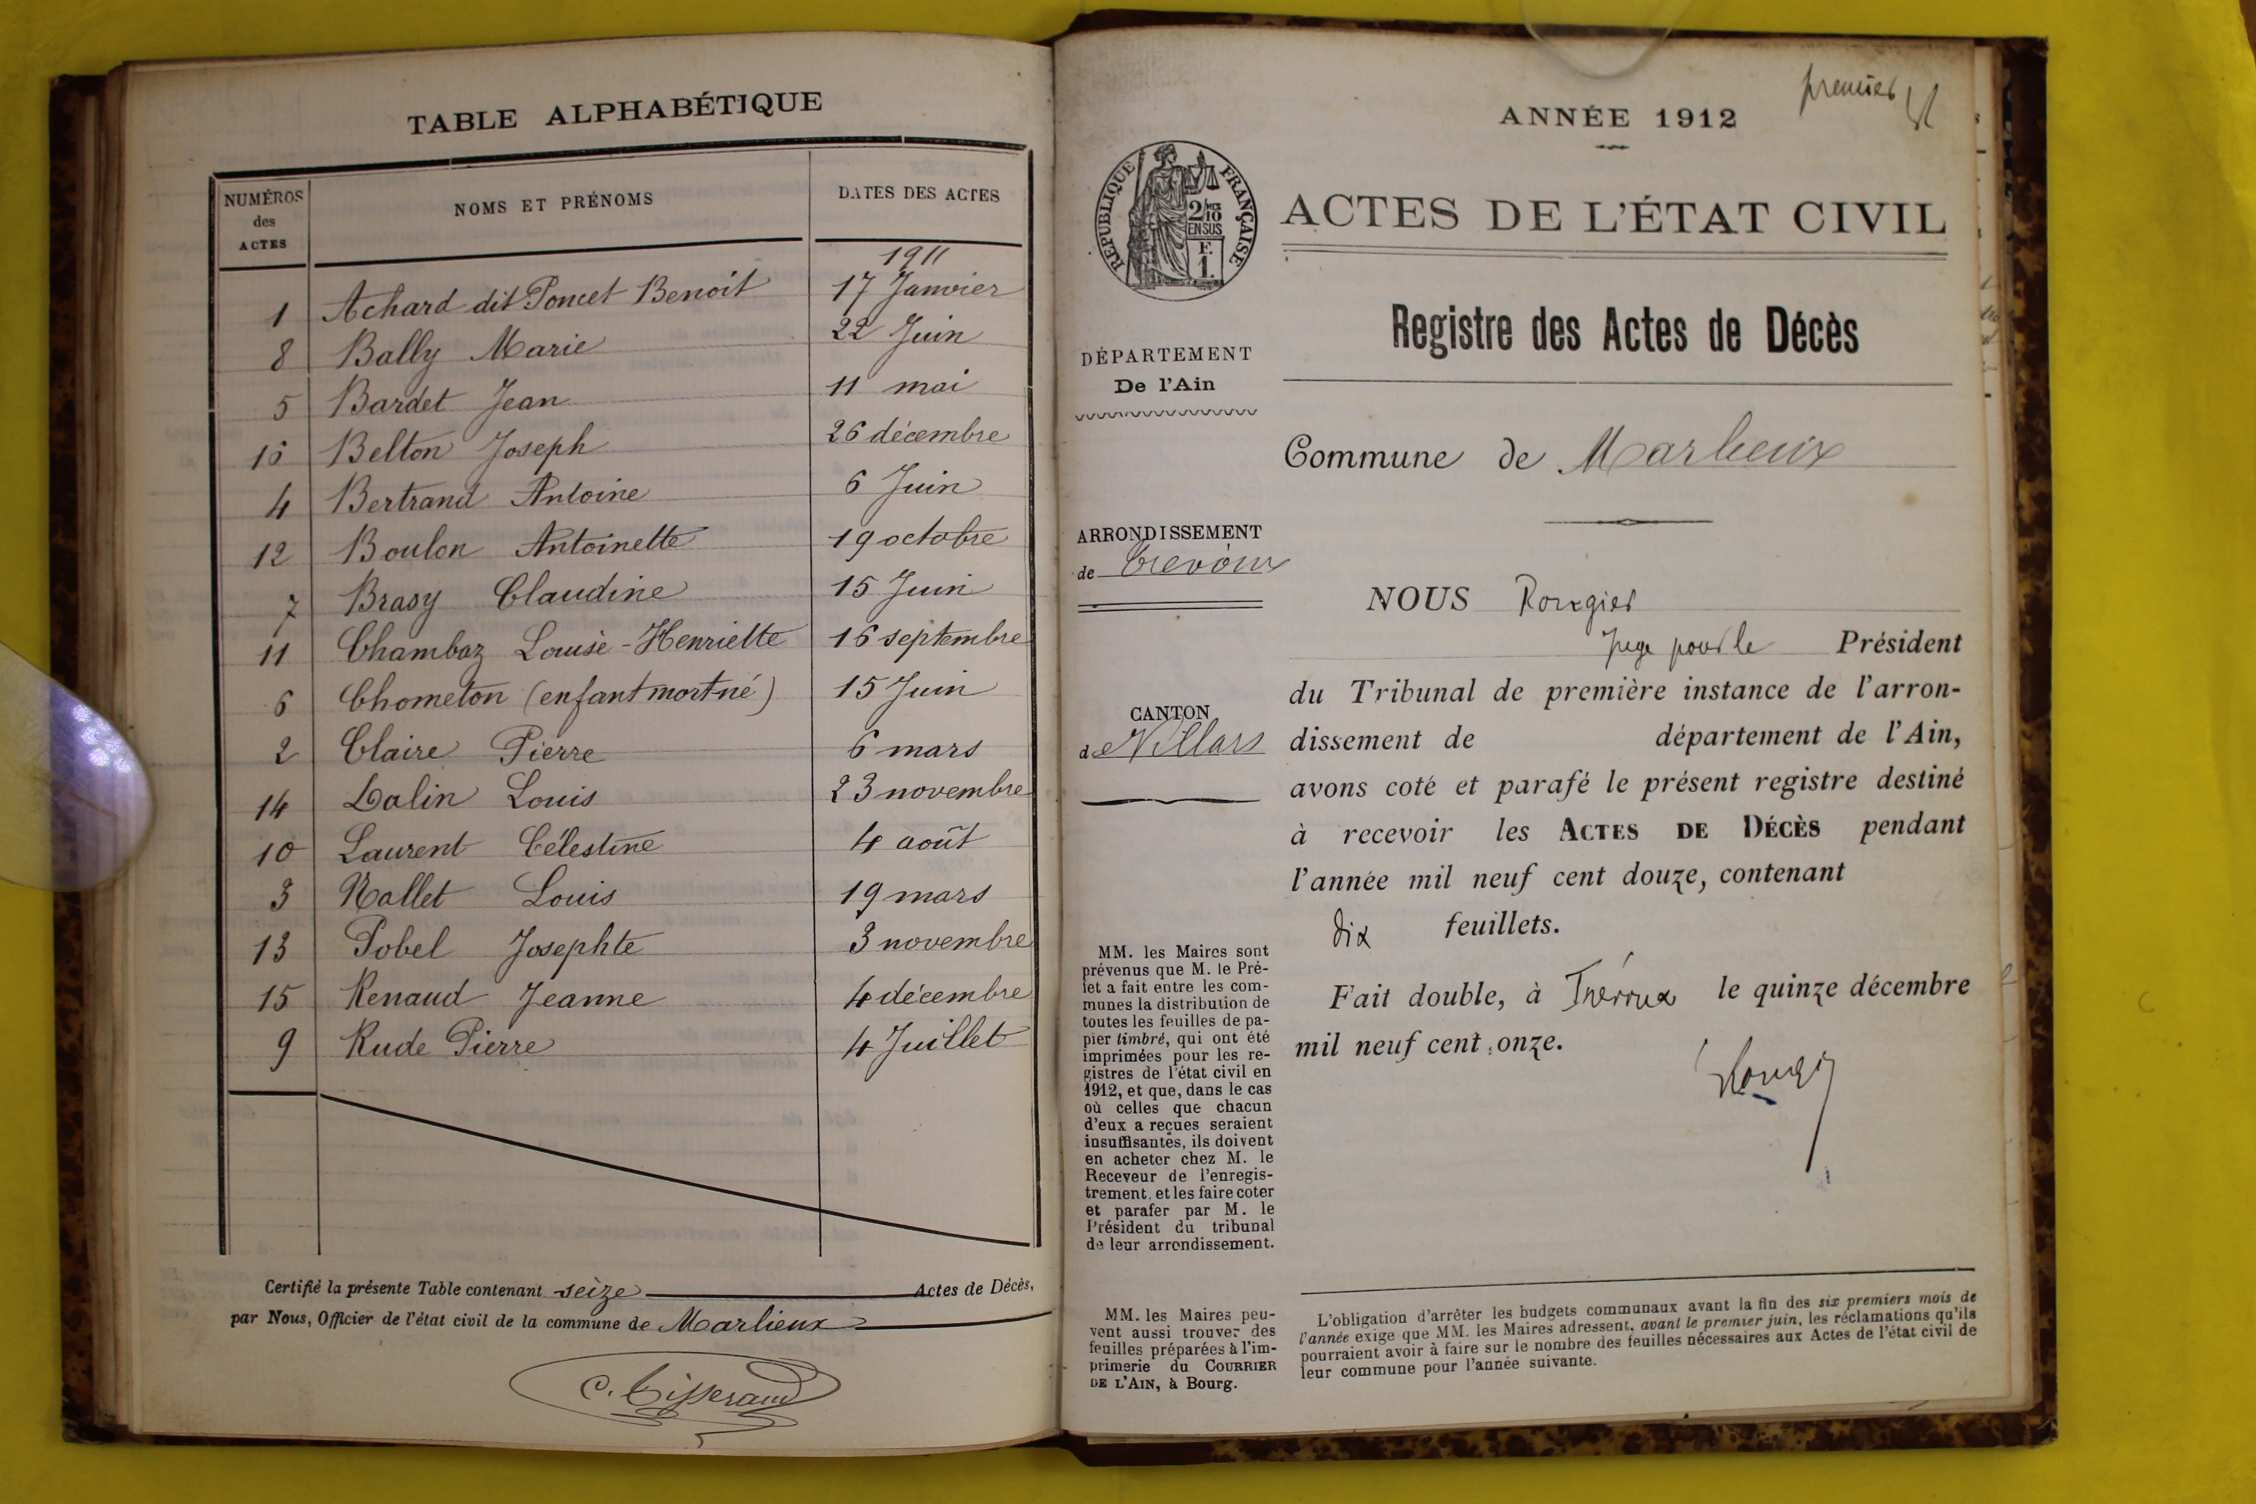 TABLE ALPHABÉTIQUE
NUMÉROS des ACTES NOMS ET PRÉNOMS DATES DES ACTES
1911
1 Achard dit Poncet Benoit 17 Janvier
8 Bally Marie 22 Juin
5 Bardet Jean 11 mai
16 Belton Joseph 26 décembre
4 Bertrand Antoine 6 Juin
12 Boulon Antoinette 19 octobre
7 Brasy Claudine 15 Juin
11 Chambaz Louise-Henriette 16 septembre
6 Chometon (enfant mort né) 15 Juin
2 Claire Pierre 6 mars
14 Lalin Louis 23 novembre
10 Laurent Célestine 4 août
3 Nallet Louis 19 mars
13 Pobel Josephte 3 novembre
15 Renaud Jeanne 4 décembre
9 Rude Pierre 4 Juillet
Certifié la présente Table contenant seize Actes de Décès,
par Nous, Officier de l'état civil de la commune de Marlieux
C. Tisserand
premier
ANNÉE 1912
RÉPUBLIQUE FRANÇAISE
2/10
EN SUS
F.
1.
ACTES DE L'ÉTAT CIVIL
Registre des Actes de Décès
DÉPARTEMENT
De l'Ain
Commune de Marlieux
ARRONDISSEMENT
de Trévoux
CANTON
de Villars
NOUS Rougier
Juge pour le Président
du Tribunal de première instance de l'arron-
dissement de département de l'Ain,
avons coté et parafé le présent registre destiné
à recevoir les ACTES DE DÉCÈS pendant
l'année mil neuf cent douze, contenant
dix feuillets.
Fait double, à Trévoux le quinze décembre
mil neuf cent onze.
Rougier
MM. les Maires sont
prévenus que M. le Pré-
fet a fait entre les com-
munes la distribution de
toutes les feuilles de pa-
pier timbré, qui ont été
imprimées pour les re-
gistres de l'état civil en
1912, et que, dans le cas
où celles que chacun
d'eux a reçues seraient
insuffisantes, ils doivent
en acheter chez M. le
Receveur de l'enregis-
trement, et les faire coter
et parafer par M. le
Président du tribunal
de leur arrondissement.
MM. les Maires peu-
vent aussi trouver des
feuilles préparées à l'im-
primerie du COURRIER
DE L'AIN, à Bourg.
L'obligation d'arrêter les budgets communaux avant la fin des six premiers mois de
l'année exige que MM. les Maires adressent, avant le premier juin, les réclamations qu'ils
pourraient avoir à faire sur le nombre des feuilles nécessaires aux Actes de l'état civil de
leur commune pour l'année suivante.